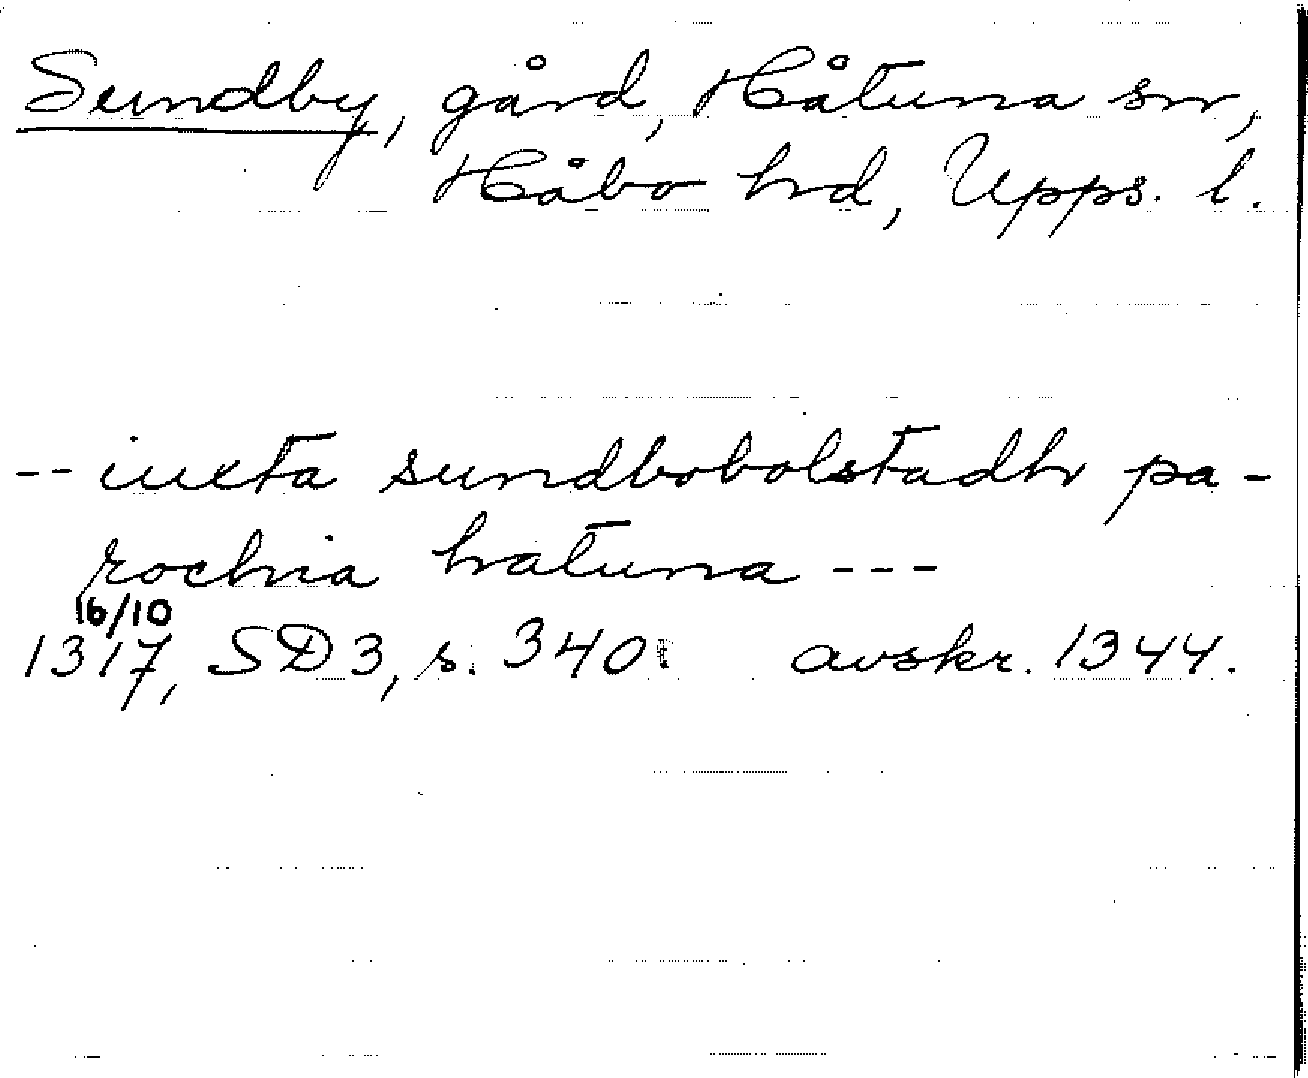 Sundby, gård, Håtuna sn,
Håbo hd, Upps. l.
-- iuxta sundbobolstadh pa-
rochia hatuna ---
16/10
1317, SD 3, s. 340. avskr. 1344.